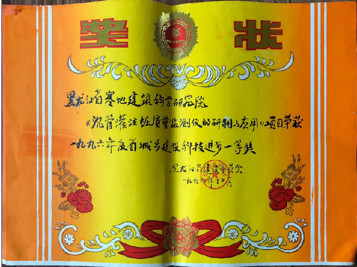 奖状
黑龙江省寒地建筑科学研究院
《九普灌注桩质量监测仪的研制与应用》项目荣获
一九九六年度省城乡建设科技进步一等奖
黑龙江省建设委员会
一九九